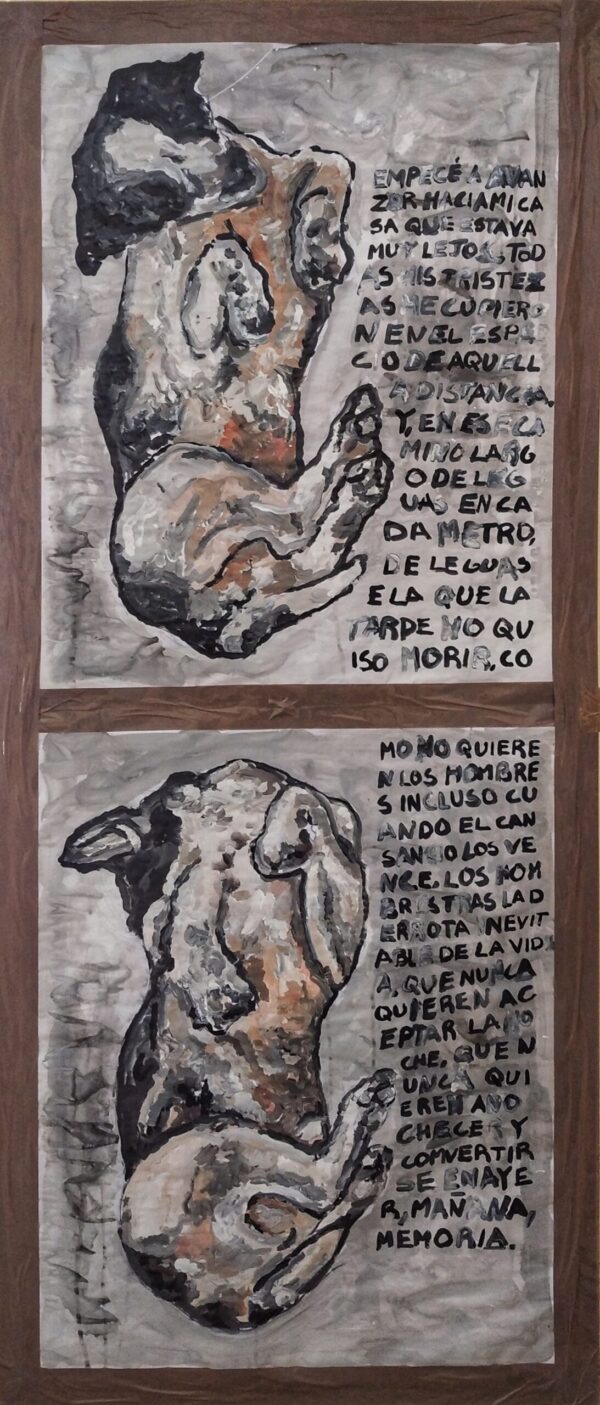 EMPECÉ A AVAN
ZAR HACIA MI CA
SA QUE ESTAVA
MUY LEJOS, TOD
AS MIS TRISTEZ
AS ME CUPIERO
N EN EL ESPA
CIO DE AQUELL
A DISTANCIA.
Y, EN ESE CA
MINO LARG
O DE LEG
UAS EN CA
DA METRO,
DE LEGUAS
E LA QUE LA
TARDE NO QU
ISO MORIR, CO
MO NO QUIERE
N LOS HOMBRE
S INCLUSO CU
ANDO EL CAN
SANCIO LOS VE
NCE. LOS HOM
BRES TRAS LA D
ERROTA INEVIT
ABLE DE LA VID
A, QUE NUNCA
QUIEREN AC
EPTAR LA NO
CHE, QUE N
UNCA QUI
EREN ANO
CHECER Y
CONVERTIR
SE EN AYE
R, MAÑANA,
MEMORIA.